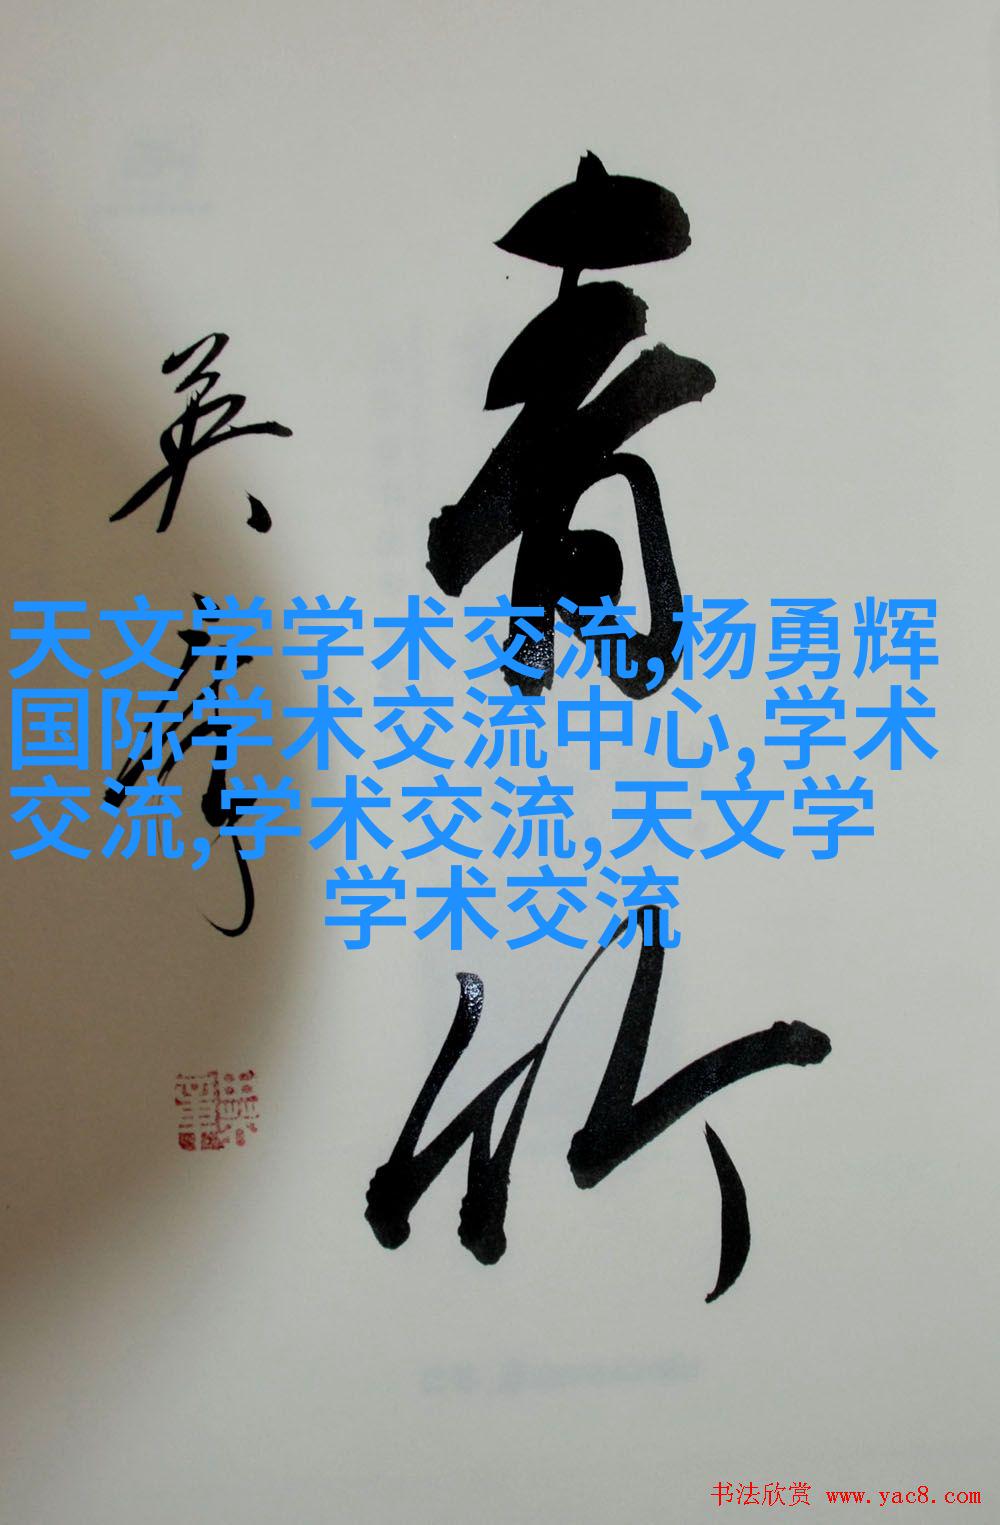 青竹
英彦
天文学学术交流,杨勇辉
国际学术交流中心,学术
交流,学术交流,天文学
学术交流
书法欣赏 www.yac8.com